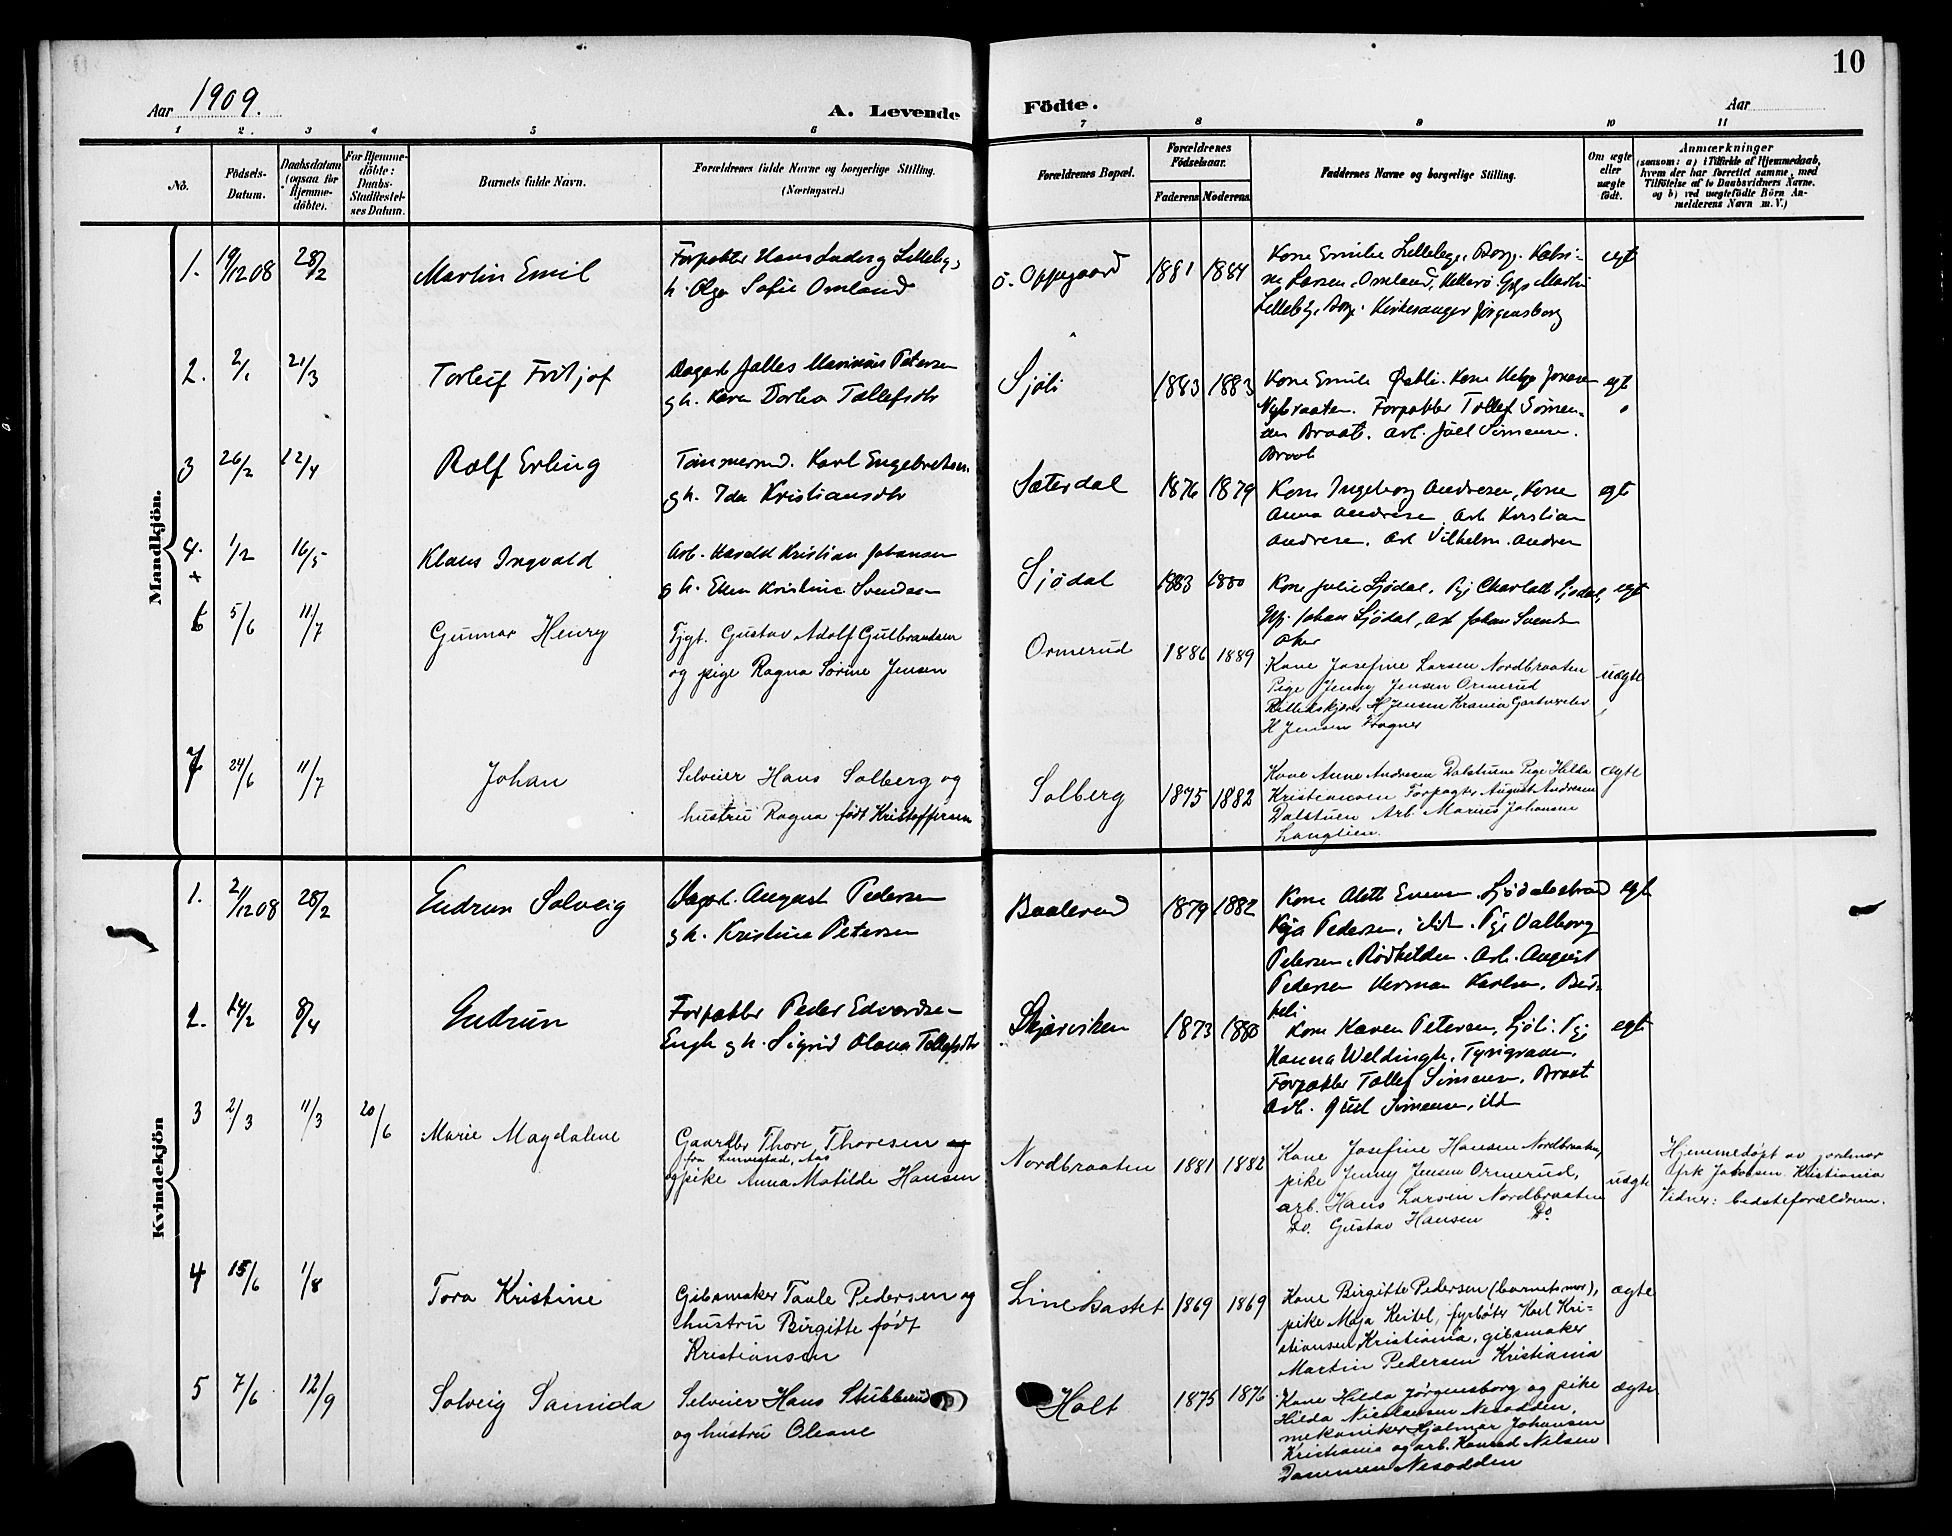 10
Aar 1909. A. Levende Födte. Aar
1 2. 3 4 5 6 7 8 9 10 11
No. Födsels-Datum. Daabsdatum (ogsaa for Hjemme-döbte). For Hjemme-döbte: Daabs-Stadfæstel-ses Datum. Barnets fulde Navn. Forældrenes fulde Navne og borgerlige Stilling. (Næringsvei.) Forældrenes Bopæl. Forældrenes Födselsaar. Faderens Moderens Faddernes Navne og borgerlige Stilling. Om ægte eller uægte födt. Anmærkninger (saasom: a) i Tilfælde af Hjemmedaab, hvem der har forrettet samme, med Tilföielse af to Daabsvidners Navne. og b) ved uægtefödte Börn An-melderens Navn m. V.)
Mandkjön.
1. 19/12 08 28/2 Martin Emil Forpakter Hans Ludvig Lilleby,
h. Olga Sofie Omland
ö. Oppegaard 1881 1884 Kone Emilie Lilleby, Katri-
ne Larsen, Omland, Martin
Lilleby, Kirkesanger Jörgensborg
egt
2. 2/1 21/3 Torleif Fritjof Dagarb. Jalles Marinius Petersen
g h. Karen Dortea Tollefsdtr
Sjöli 1883 1883 Kone Emilie Östli. Kone Helga Jonasen
Nybraaten. Forpakter Tollef Simen-
sen Braat. Arb. Joel Simensen.
Braat
egt
3 26/2 12/4 Rolf Erling Tömmermd. Karl Engebretsen.
g h. Ida Kristiansdtr
Sæterdal 1876 1879 Kone Ingeborg Andresen, Kone
Anna Andresen, Arb. Kristian
Andresen. Arb Vilhelm Andresen
egt
4. + 1/2 16/5 Klaus Ingvald Arb. Harald Kristian Johansen
g h. Ellen Kristine Svendsen
Sjödal 1883 1880 Kone Julie Sjödal. Pg Charlott Sjödal,
Johan Sjödal, Arb Johan Svends
egt
6 5/6 11/7 Gunnar Henry Tjgt. Gustav Adolf Gulbrandsen
og pige Ragna Sörine Jensen
Ormerud 1886 1889 Kone Josefine Larsen Nordbraaten
Pige Jenny Jensen Ormerud
H Jensen Krania
H Jensen Frogner
uægte
7 24/6 11/7 Johan Selveier Hans Solberg og
hustru Ragna född Kristoffersen
Solberg 1875 1882 Kone Anne Andresen Dalstuen Pige Hilda
Kristiansen Forpagter August Andresen
Dalstuen Arb. Marius Johansen
Langlien.
ægte
Kvindekjön
1. 21/12 08 28/2 Gudrun Solveig Dagarb. August Pedersen
g h. Kristine Petersen
Baalerud 1879 1882 Kone Alett Evensen, Sjödalstrand
Kaja Pedersen, ibid. Pg. Valborg
Petersen, Rödkilden. Arb. August
Pedersen Herman Karlsen, Bir-
keli
egt
2. 14/2 8/4 Gudrun Forpakter Peder Edvardsen
Engh g h. Sigrid Olava Tollefsdtr
Skjærviken 1873 1880 Kone Karen Petersen, Sjöli. Pg
Hanna Weldingh, Tyrigraven.
Forpakter Tollef Simensen, Braat
Arb. Joel Simensen, ibd
egt
3 2/3 11/3 20/6 Marie Magdalene Gaardbr Thore Thoresen
fra Aas
og pike Anna Matilde Hansen
Nordbraaten 1881 1882 Kone Josefine Hansen Nordbraaten,
pike Jenny Jensen Ormerud,
arb. Hans Larsen Nordbraaten
Do. Gustav Hansen Do.
uægte
Hjemmedöpt av jordmor
frk Jakobsen Kristiania
Vidner: bedsteforældrene.
4 15/6 1/8 Tora Kristine Gibsmaker Taale Pedersen og
hustru Birgitte född
Kristiansen
Linekastet 1869 1869 Kone Birgitte Pedersen (barnets mor),
pike Maja Keitel, fyrböter Karl Kri-
stiansen Kristiania, gibsmaker
Martin Pedersen Kristiania
ægte
5 7/6 12/9 Solveig Samida Selveier Hans Stubberud
og hustru Oleane
Holt 1875 1876 Kone Hilda Jörgensborg og pike
Hilda Nicolaisen Nesodden,
mekaniker Hjalmar Johansen
Kristiania og arb. Konrad Nilsen
Dammen Nesodden
ægte